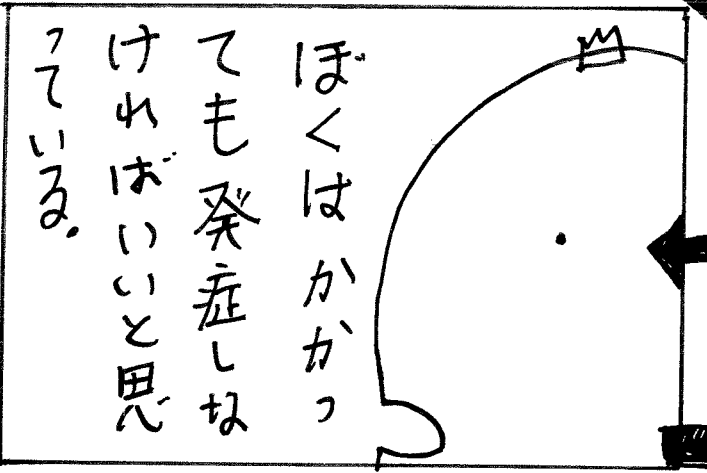 ぼくはかかっ
ても発症しな
ければいいと思
っている.